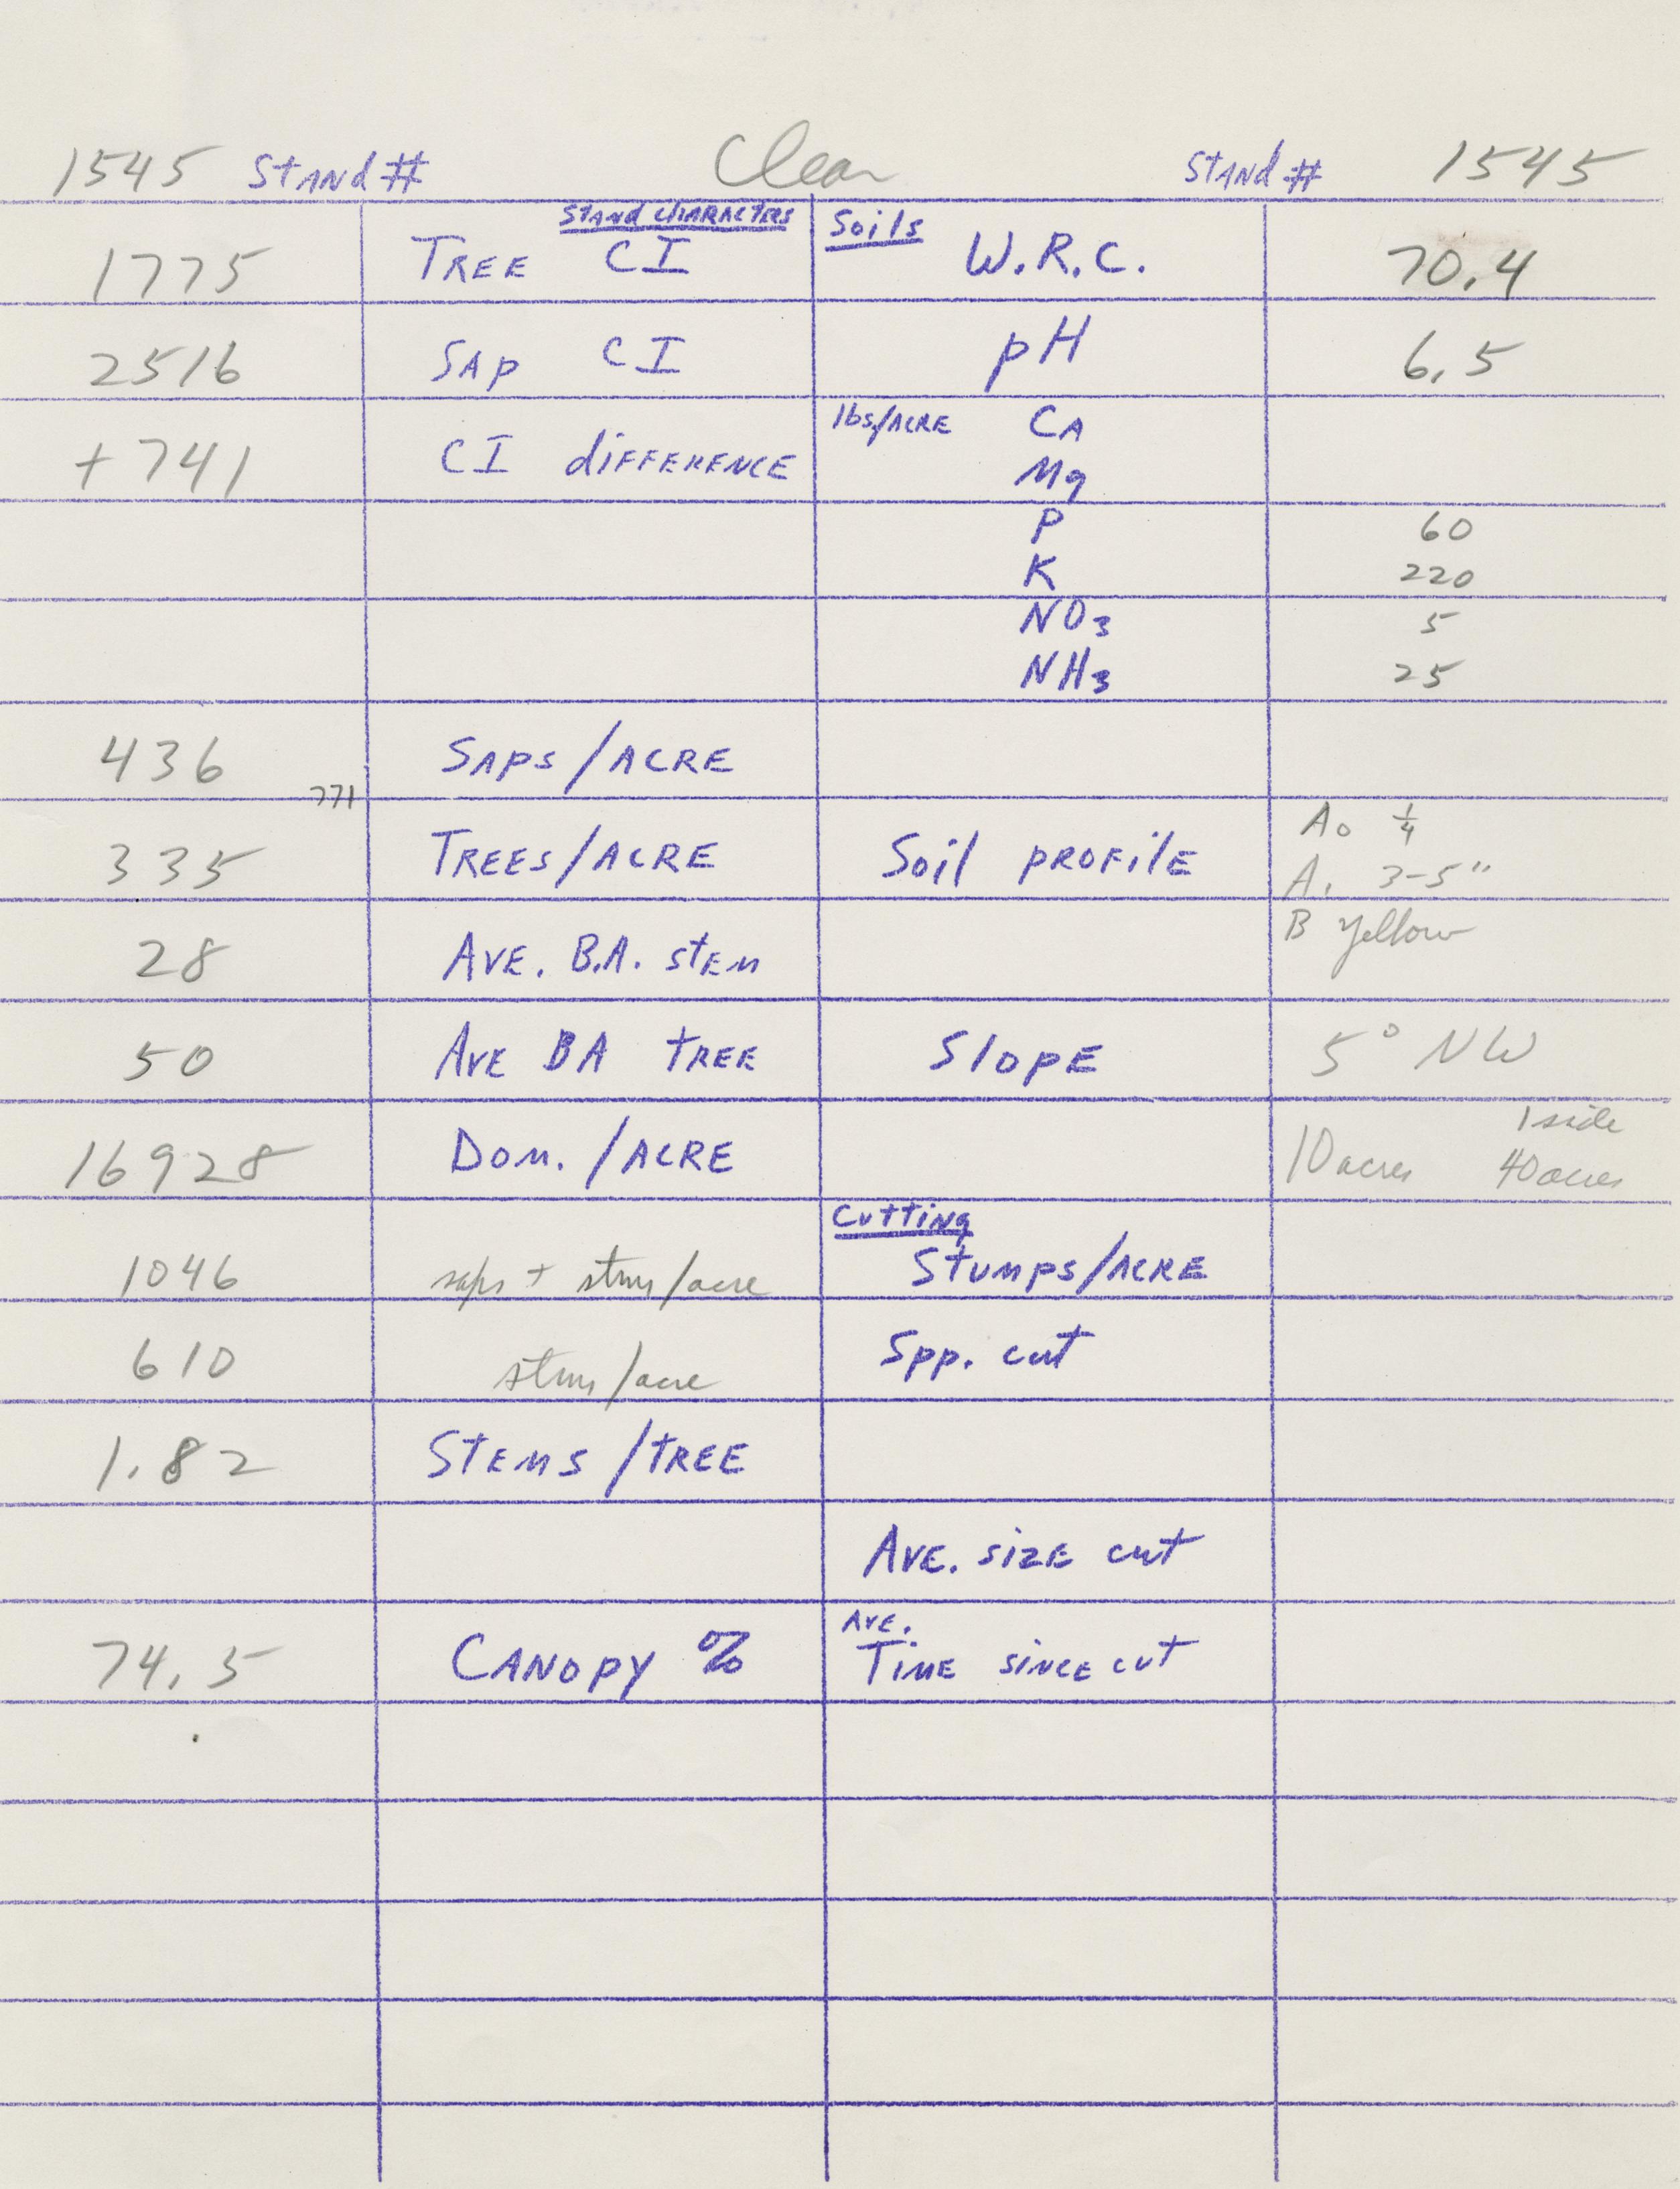 1545 Stand # Clear Stand # 1545
Stand Characters Soils
1775 Tree CI W.R.C. 70.4
2516 Sap CI pH 6.5
+741 CI difference lbs/acre Ca
Mg
P 60
K 220
NO3 5
NH3 25
436 Saps/acre
771
335 Trees/acre Soil profile A0 1/4
A1 3-5"
28 Ave. B.A. stem B yellow
50 Ave BA tree Slope 5° NW
16928 Dom./acre 10 acres 1 side 40 acres
Cutting
1046 saps + stms/acre Stumps/acre
610 stms/acre Spp. cut
1.82 Stems/tree
Ave. size cut
74.5 Canopy % Ave. Time since cut